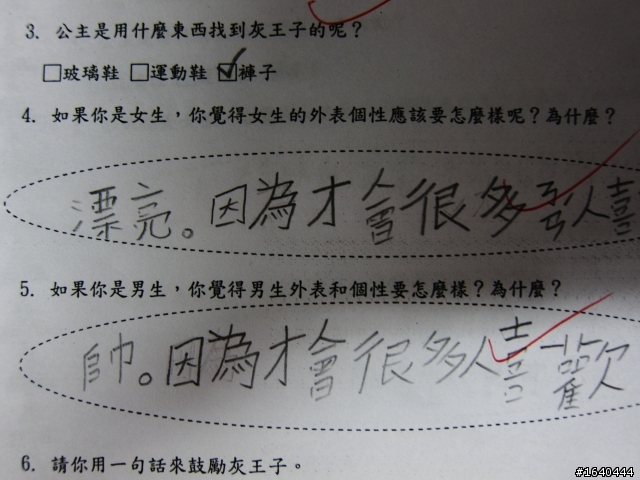 3. 公主是用什麼東西找到灰王子的呢？
□玻璃鞋 □運動鞋 ☑褲子
4. 如果你是女生，你覺得女生的外表個性應該要怎麼樣呢？為什麼？
漂亮。因為才會很多男人喜
5. 如果你是男生，你覺得男生外表和個性要怎麼樣？為什麼？
帥。因為才會很多人喜歡
6. 請你用一句話來鼓勵灰王子。
#1640444